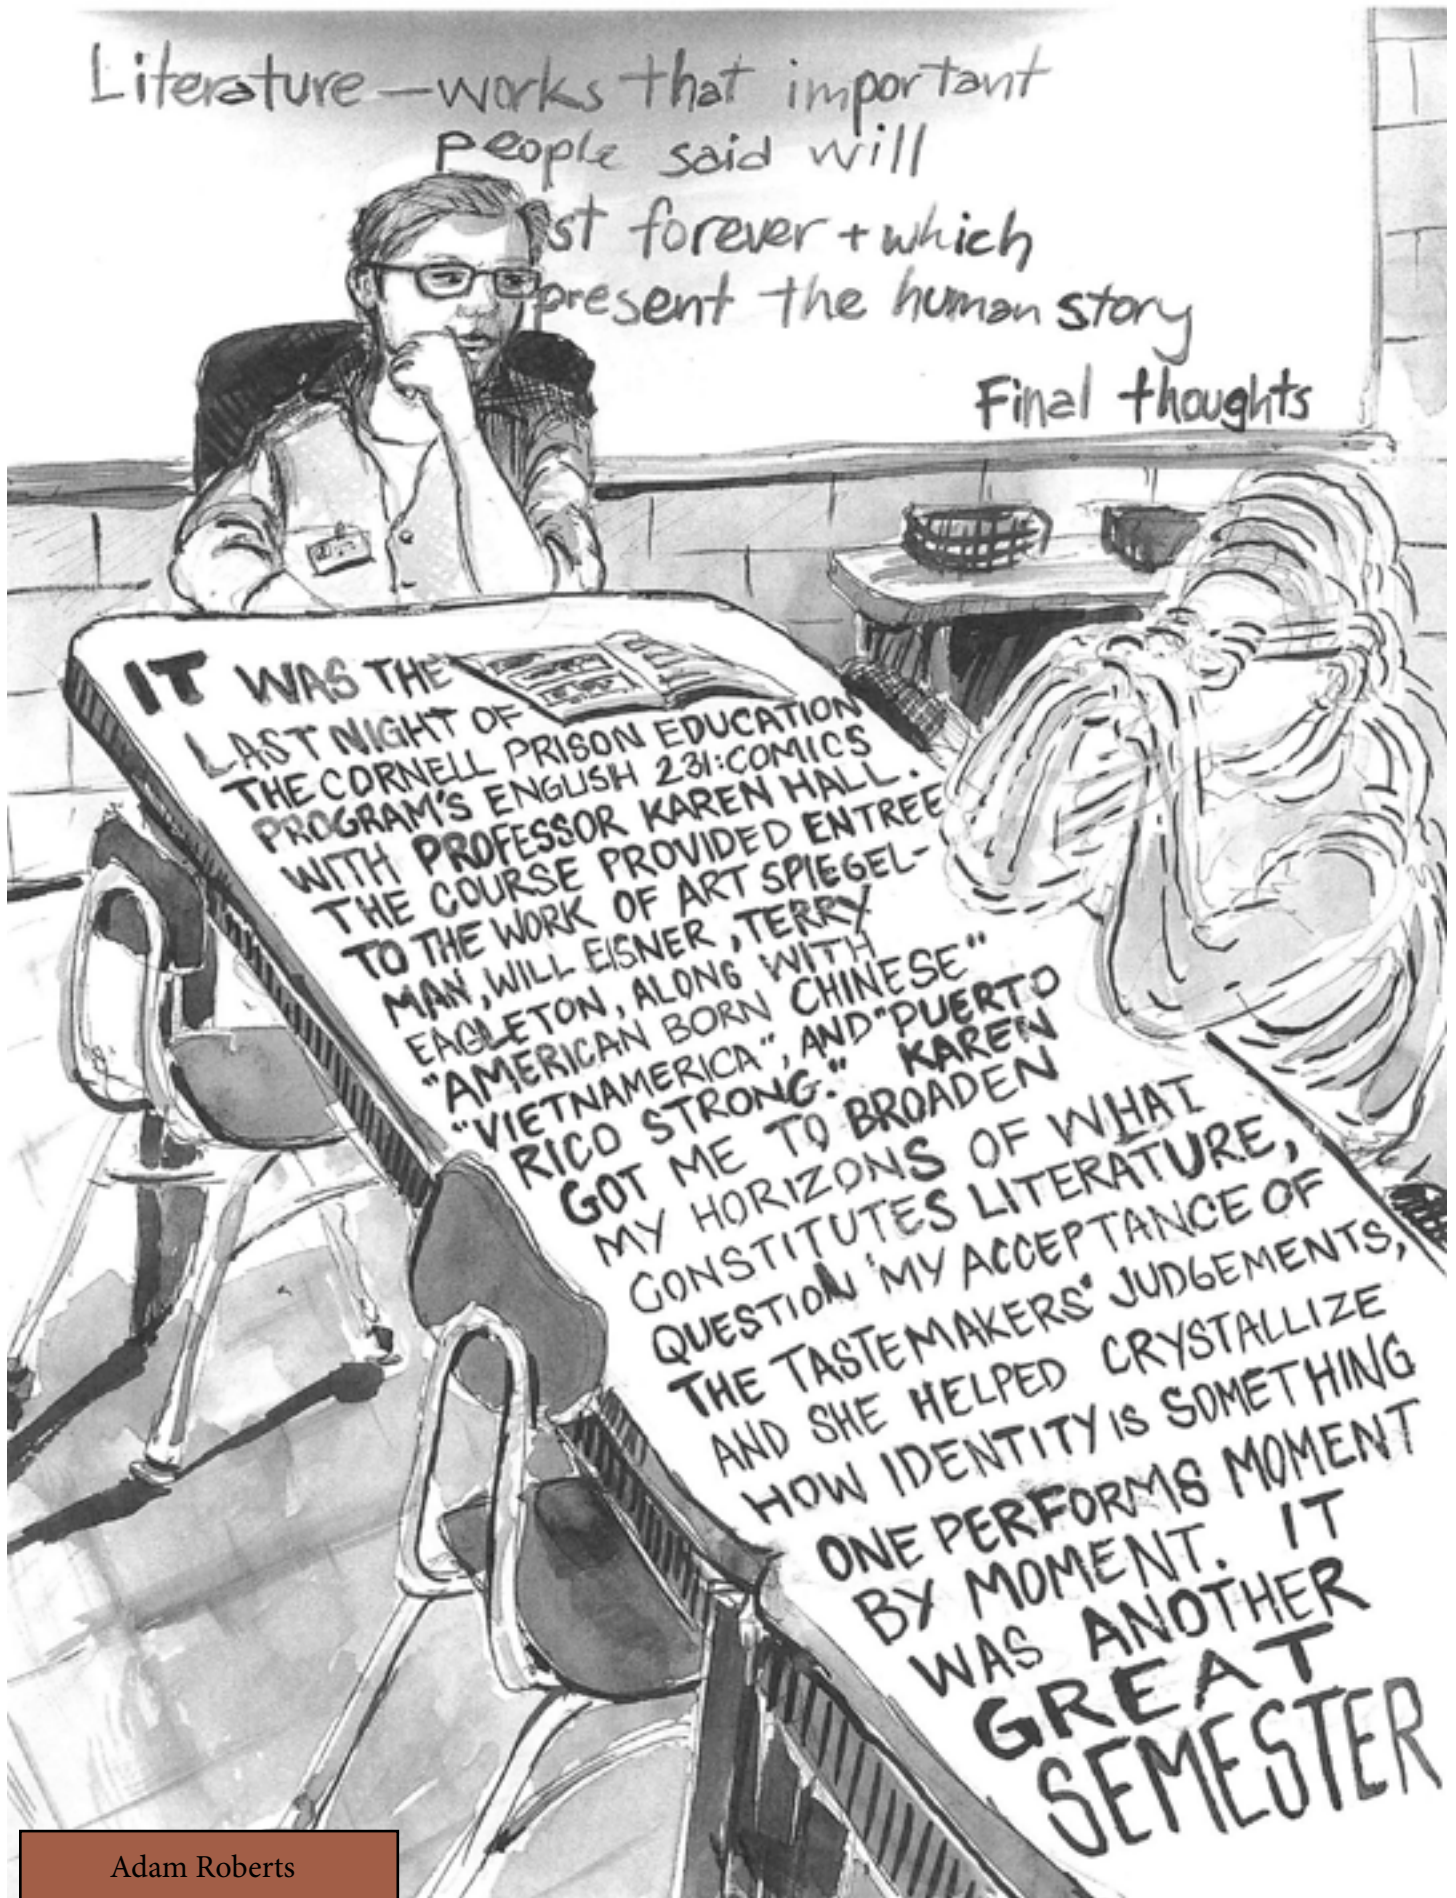 Literature — works that important
people said will
st forever + which
present the human story
Final thoughts
IT WAS THE
LAST NIGHT OF
THE CORNELL PRISON EDUCATION
PROGRAM'S ENGLISH 231: COMICS
WITH PROFESSOR KAREN HALL.
THE COURSE PROVIDED ENTREE
TO THE WORK OF ART SPIEGEL-
MAN, WILL EISNER, TERRY
EAGLETON, ALONG WITH
"AMERICAN BORN CHINESE"
"VIETNAMERICA", AND "PUERTO
RICO STRONG." KAREN
GOT ME TO BROADEN
MY HORIZONS OF WHAT
CONSTITUTES LITERATURE,
QUESTION MY ACCEPTANCE OF
THE TASTEMAKERS' JUDGEMENTS,
AND SHE HELPED CRYSTALLIZE
HOW IDENTITY IS SOMETHING
ONE PERFORMS MOMENT
BY MOMENT. IT
WAS ANOTHER
GREAT
SEMESTER
Adam Roberts